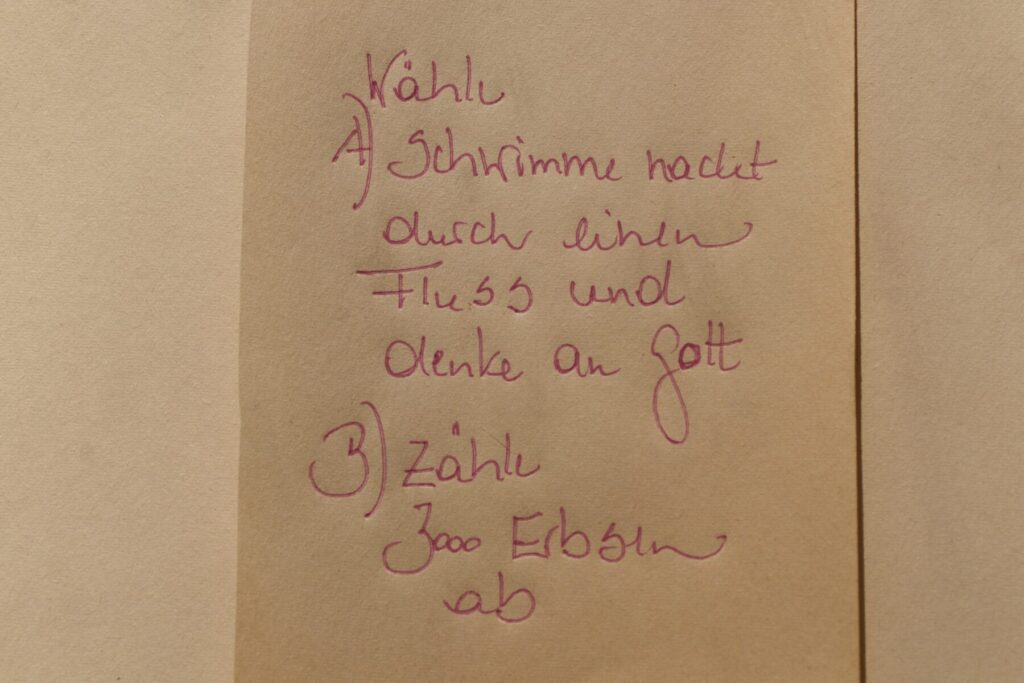 Wähle
A) Schwimme nackt
durch einen
Fluss und
denke an Gott
B) Zähle
3000 Erbsen
ab